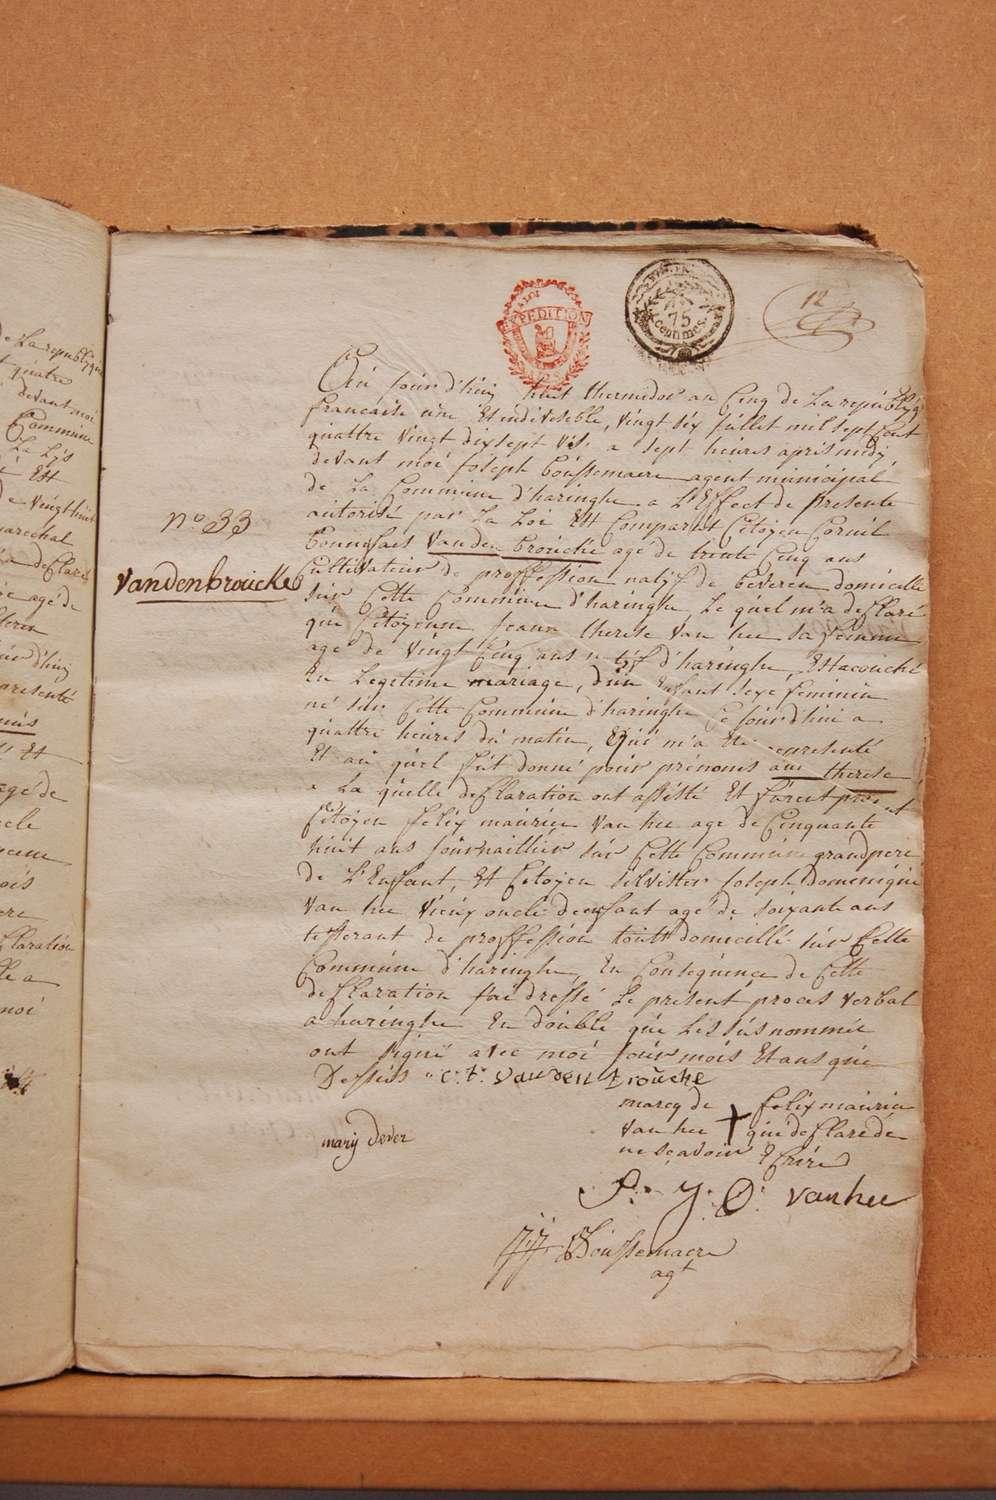 de La republique
quatre
devant moi
Commune
Est
de vingt huit
marechal
age de
presenté
Et
age de
declaration
moi
EXPEDITION
75
centimes
12
Au jourd'huy huit thermidor an Cinq de La republiq
francaise une Et indivisible, vingt six juillet mil sept Cent
quattre vingt dix sept v.s. a sept heures apres midy
devant moi joseph Boussemaere agent municipal
de La Commune d'haringhe a L'Effect de presente
autorisé par La Loi Est Comparut Citoyen Cornil
bonnefaes Vanden broucke age de trente Cinq ans
Cultivateur de proffession natif de beveren domicille
sur Cette Commune d'haringhe, Le quel m'a declaré
que Citoyenne jeanne therese Van hee sa femme
age de vingt Cinq ans natif d'haringhe, Est acouché
En Legetime mariage, d'un Enfant sexe feminin
né sur Cette Commune d'haringhe Ce jourd'hui a
quattre heures du matin, Equi m'a Eté representé
Et au quel fut donné pour prénoms ane therese
a La quelle declaration ont assisté Et furent present
Citoyen felix maurice Van hee age de Cinquante
huit ans journaillier sur Cette Commune grandpere
de L'Enfant, Et Citoyen silvester joseph Domenique
Van hee vieux oncle d'enfant agé de soixante ans
tisserant de proffession toutt domicillé sur Cette
Commune d'haringhe, En Consequence de Cette
declaration j'ai dressé Le present proces verbal
a haringhe En double que Les susnommée
ont signé avec moi jour mois Et ans que
Dessus c.b. vanden brouche
n° 33
Vandenbroucke
marcq de + felix maurice
van hee que declare de
ne sçavoir Ecrire
mary dever
S. J. D. vanhee
J.J. Boussemaere
agt